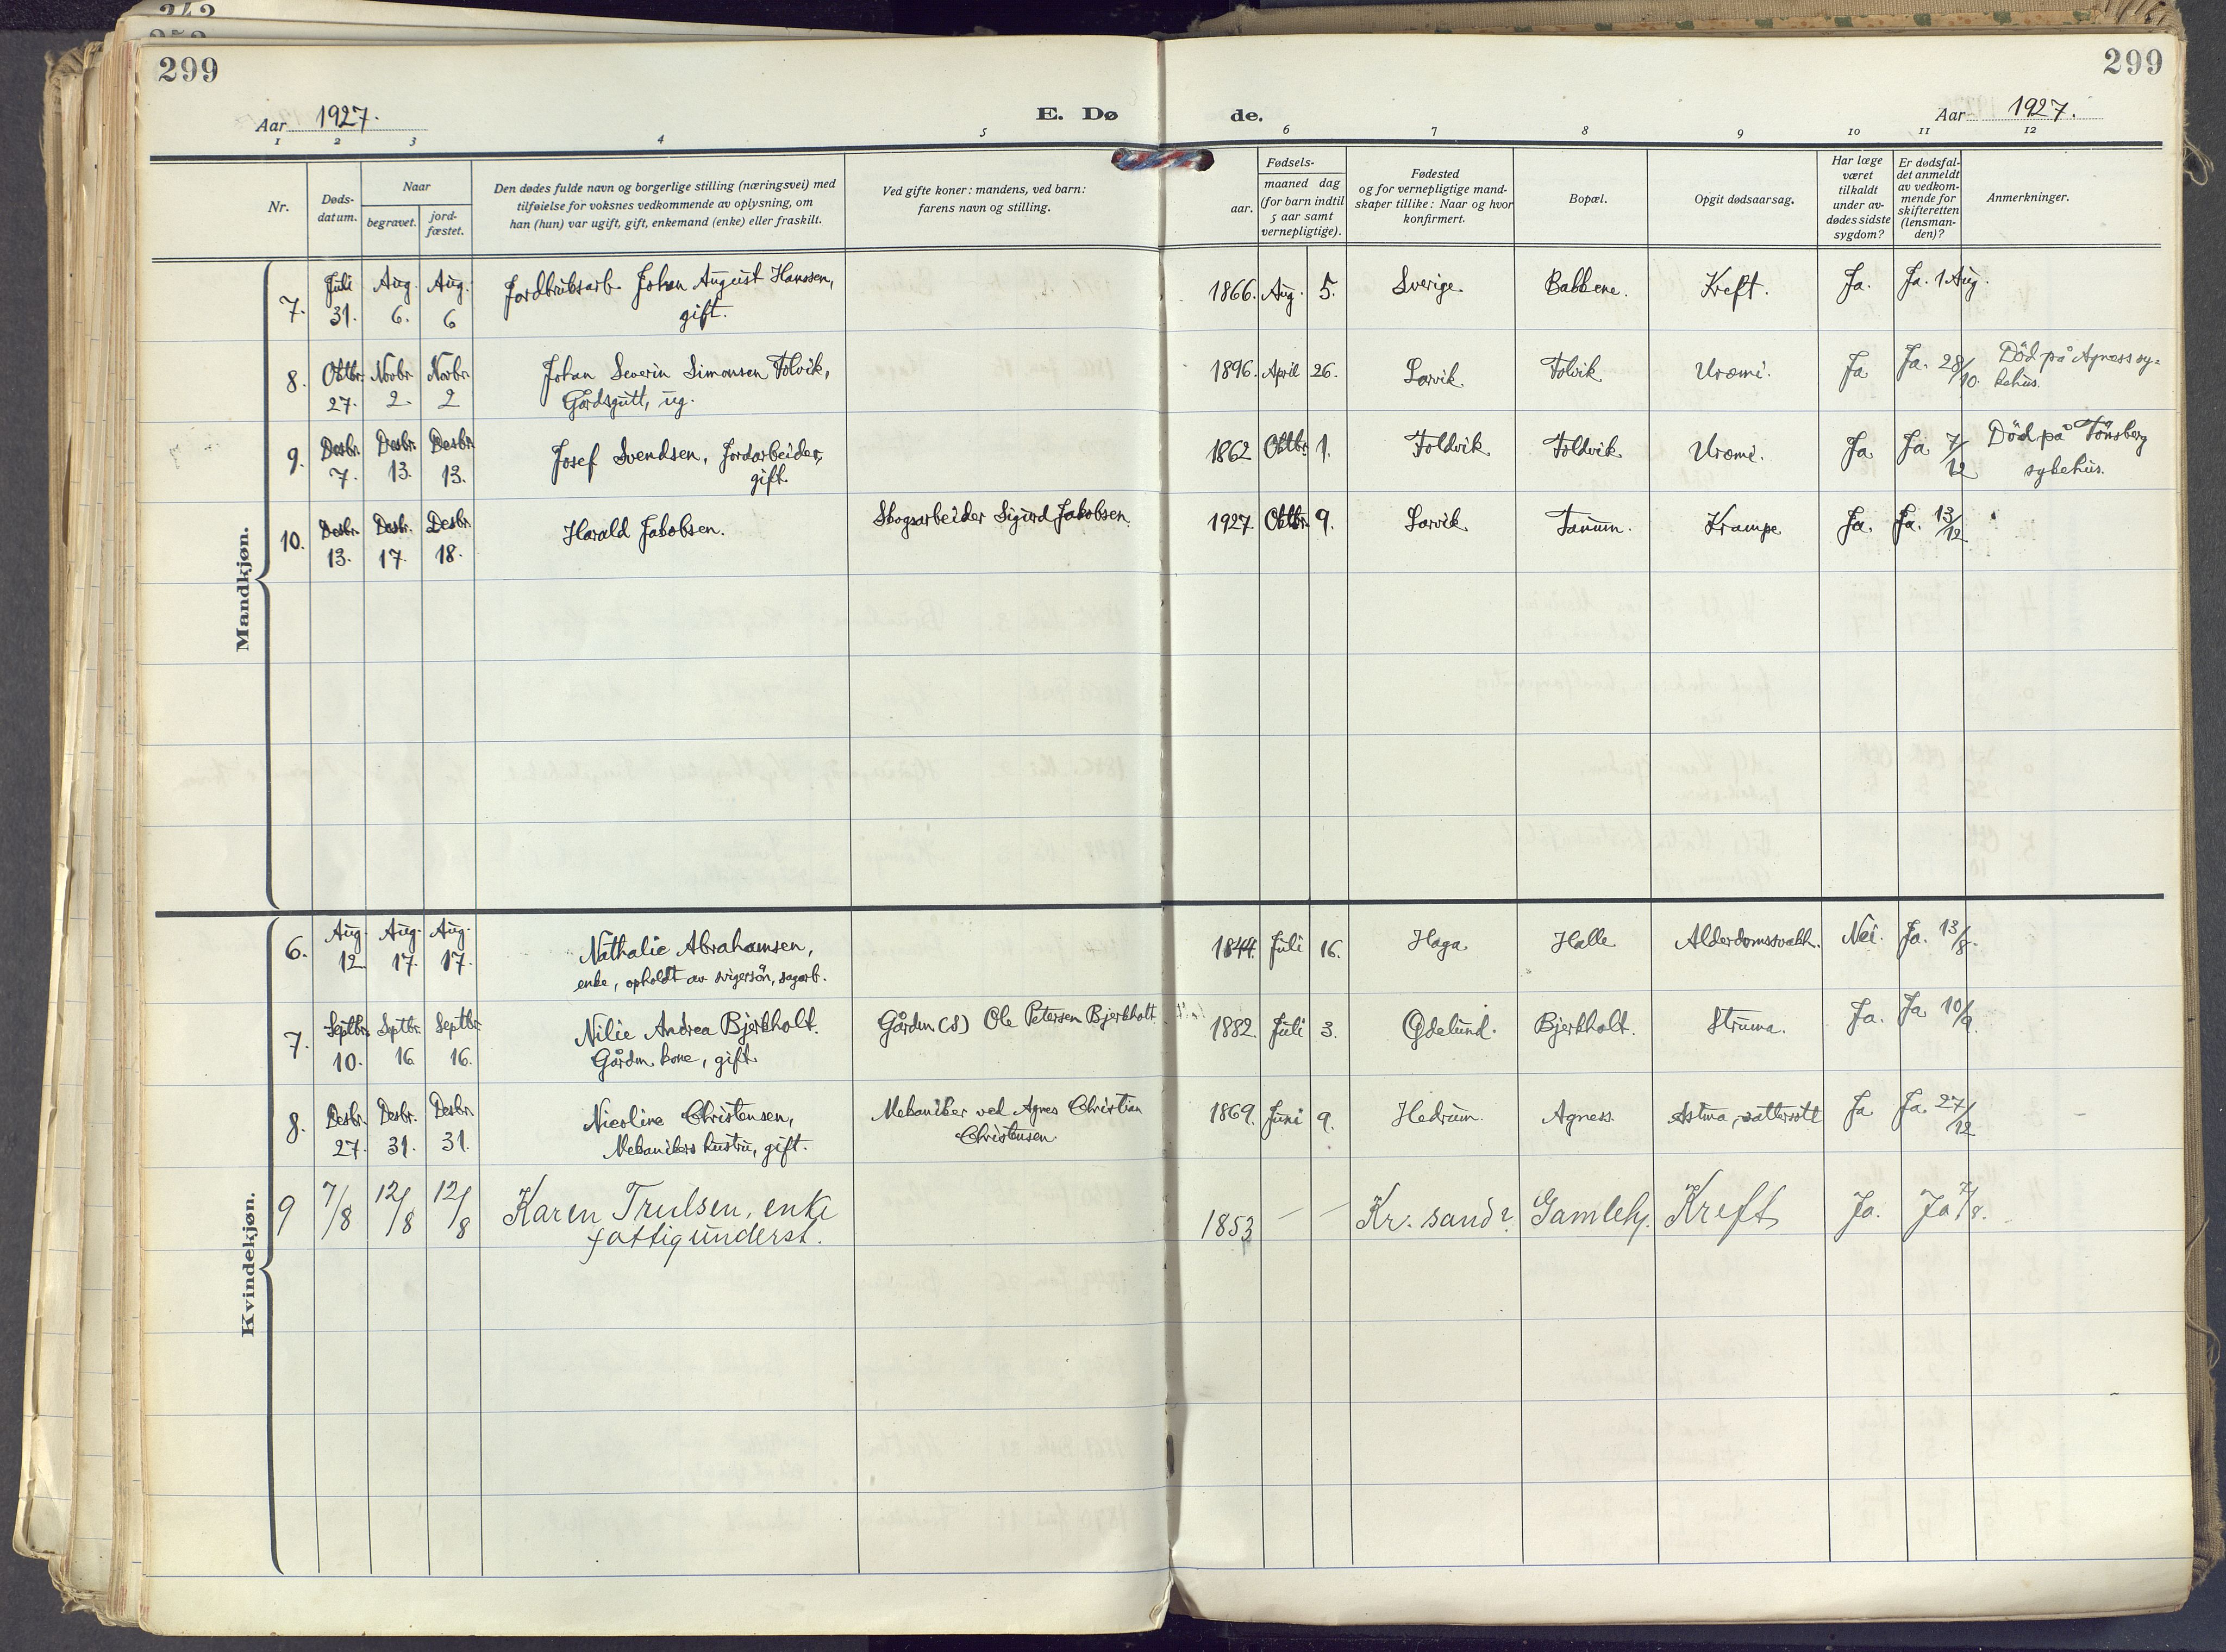 299
299
Aar 1927.
E. Dø
de.
Aar 1927.
1 2 3 4 5 6 7 8 9 10 11 12
Nr.
Døds-
datum.
Naar
begravet.
jord-
fæstet.
Den dødes fulde navn og borgerlige stilling (næringsvei) med
tilføielse for voksnes vedkommende av oplysning, om
han (hun) var ugift, gift, enkemand (enke) eller fraskilt.
Ved gifte koner: mandens, ved barn:
farens navn og stilling.
aar.
Fødsels-
maaned dag
(for barn indtil
5 aar samt
vernepligtige).
Fødested
og for vernepligtige mand-
skaper tillike: Naar og hvor
konfirmert.
Bopæl.
Opgit dødsaarsag.
Har læge
været
tilkaldt
under av-
dødes sidste
sygdom?
Er dødsfal-
det anmeldt
av vedkom-
mende for
skifteretten
(lensman-
den)?
Anmerkninger.
Mandkjøn.
7. Juli Aug. Aug. Jordbruksarb. Johan August Hanssen, 1866. Aug. 5. Sverige. Bakkene. Kreft. Ja. Ja. 1 Aug.
31. 6. 6 gift.
8. Oktbr. Novbr. Novbr. Johan Severin Simonsen Folvik, 1896. April 26. Larvik. Folvik Uræmi. Ja Ja. 28/10. Död på Agness sy-
27. 2. 2 Gårdsgutt, ug. kehus.
9. Desbr. Desbr. Desbr. Josef Svendsen, Jordarbeider, 1862 Oktbr. 1. Foldvik Foldvik Uræmi. Ja Ja 7/12 Död på Tönsberg
7. 13. 13. gift. sykehus.
10. Desbr. Desbr. Desbr. Harald Jakobsen. Skogsarbeider Sigurd Jakobsen. 1927. Oktbr. 9. Larvik Tanum. Krampe Ja. Ja. 13/12
13. 17. 18.
Kvindekjøn.
6. Aug. Aug. Aug. Nathalie Abrahamsen, 1844. Juli 16. Haga Halle Alderdomssvakh. Nei. Ja. 13/8.
12. 17. 17. enke, opholdt av svigersön, sagarb.
7. Septbr. Septbr. Septbr. Nilie Andrea Bjerkholt. Gårdm (S) Ole Petersen Bjerkholt. 1882. Juli 3. Ødelund. Bjerkholt. Struma. Ja. Ja 10/9.
10. 16. 16. Gårdm. kone, gift.
8. Desbr. Desbr. Desbr. Nicoline Christensen, Mekaniker ved Agnes Christian 1869. Juni 9. Hedrum. Agness. Astma, vattersott Ja Ja. 27/12
27. 31. 31. Mekanikers hustru, gift. Christensen.
9 7/8 12/8 12/8 Karen Trulsen, enke 1853 — — Kr. sand? Gamlehj. Kreft Ja. Ja 7/8.
fattigunderst.